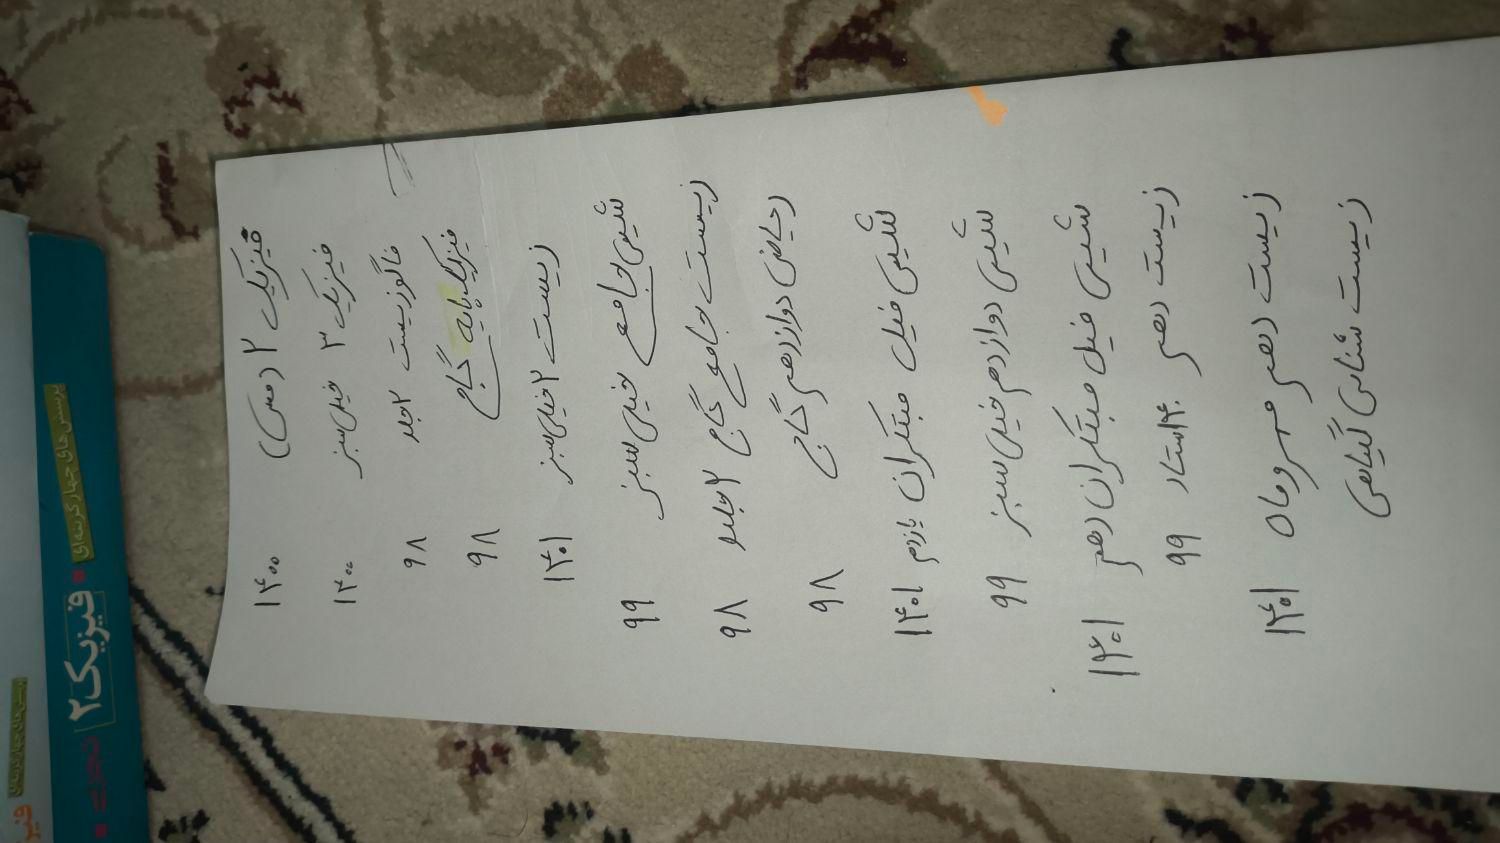 فیزیک ۲ (مس) ۱۴۰۰
فیزیک ۳ خیلی سبز ۱۴۰۰
فاگوزیست ۲ جلد ۹۸
فیزیک پایه گاج ۹۸
زیست ۲ خیلی سبز ۱۴۰۱
شیمی جامع خیلی سبز ۹۹
زیست جامع گاج ۲ جلد ۹۸
ریاضی دوازدهم گاج ۹۸
شیمی فیل مبتکران یازدهم ۱۴۰۱
شیمی دوازدهم خیلی سبز ۹۹
شیمی فیل مبتکران دهم ۱۴۰۱
زیست دهم ۴۰ استاد ۹۹
زیست دهم مهروماه ۱۴۰۱
زیست شناسی گیاهی
پرسش‌های چهارگزینه‌ای
فیزیک ۲
تجربی